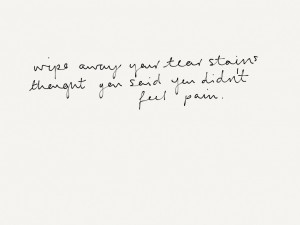 wipe away your tear stains
thought you said you didn't
feel pain.